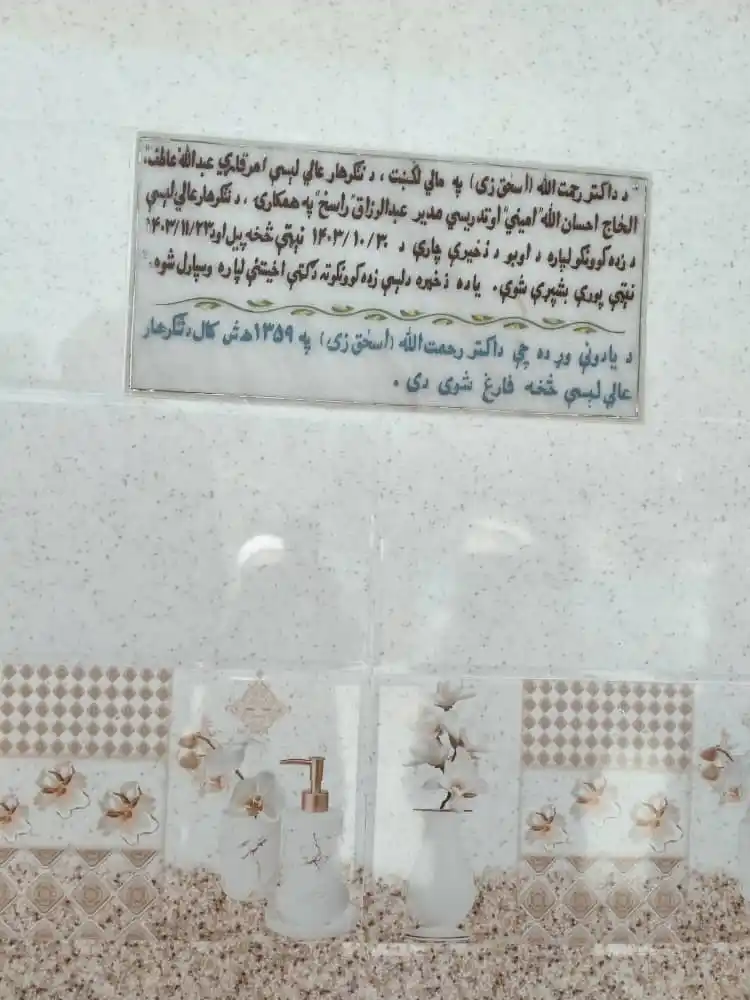 د داکتر رحمت الله (اسحٰق زی) په مالي لګښت ، د ننګرهار عالي لېسې امر قاري عبدالله "عاطف"،
الحاج احسان الله "اميني" او تدريسي مدير عبدالرزاق "راسخ" په همکارۍ ، د ننګرهار عالي لېسې
د زده کوونکو لپاره د اوبو د ذخيرې چارې د ۱۴۰۳/۱۰/۳۰ نېټې څخه پيل او د ۱۴۰۳/۱۱/۲۳
نېټې پورې بشپړې شوې. ياده ذخيره د لېسې زده کوونکو ته د ګټې اخيستنې لپاره وسپارل شوه.
د يادونې وړ ده چې داکتر رحمت الله (اسحٰق زی) په ۱۳۵۹ هـ ش کال د ننګرهار
عالي لېسې څخه فارغ شوی دی .